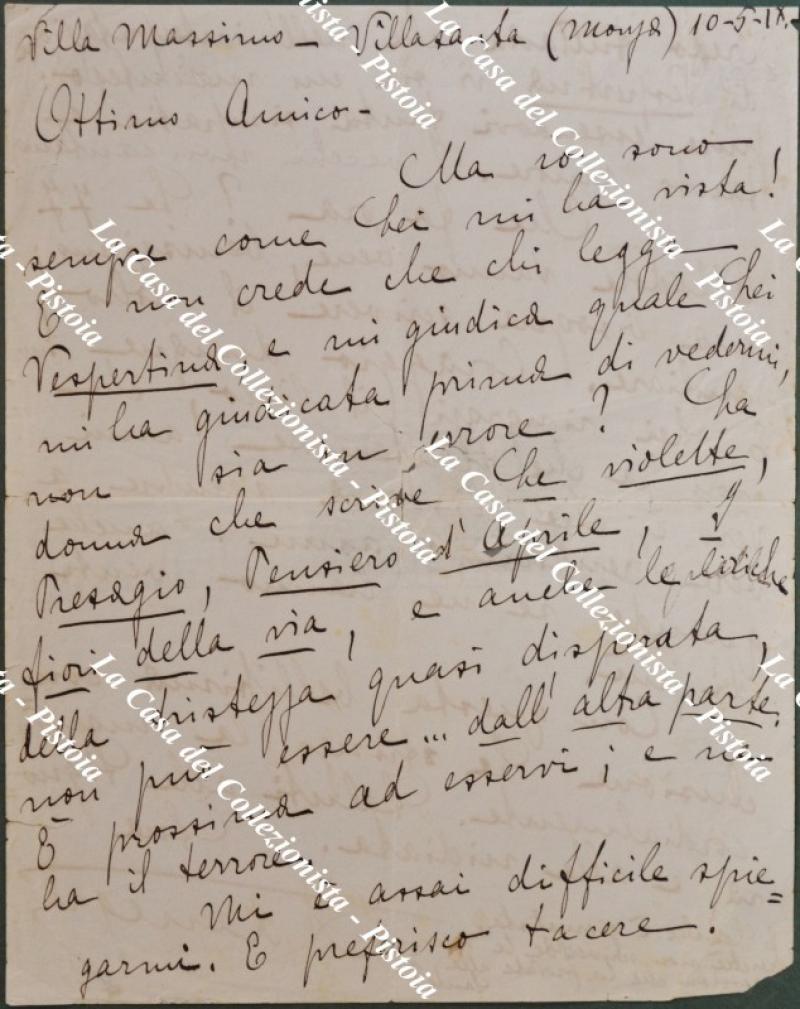 Villa Massimo - Villasanta (Monza) 10-5-IX.
Ottimo Amico -
Ma io sono
sempre come Lei mi ha vista!
E non crede che chi legga
Vespertina, e mi giudica quale Lei
mi ha giudicata prima di vedermi,
non sia in errore? La
donna che scrive Le violette,
Presagio, Pensiero d'Aprile, I
fiori della via, e anche le liriche
della tristezza quasi disperata,
non può essere... dall'altra parte.
È prossima ad esservi; e ne
ha il terrore.
Mi è assai difficile spie=
garmi. E preferisco tacere.
La Casa del Collezionista - Pistoia
La Casa del Collezionista - Pistoia
La Casa del Collezionista - Pistoia
La Casa del Collezionista - Pistoia
La Casa del Collezionista - Pistoia